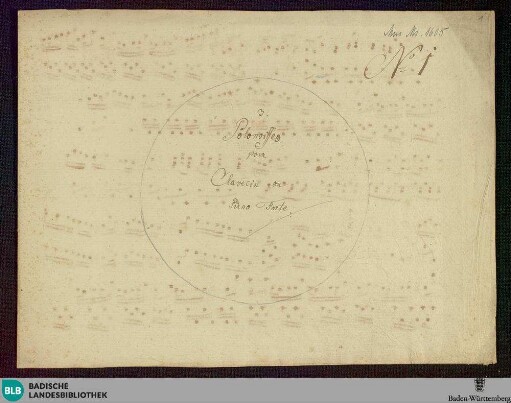 1
Mus. Ms. 1605
No 1
3
Polonoisses
pour
Clavecin ou
Piano Forte
BLB
BADISCHE
LANDESBIBLIOTHEK
Baden-Württemberg